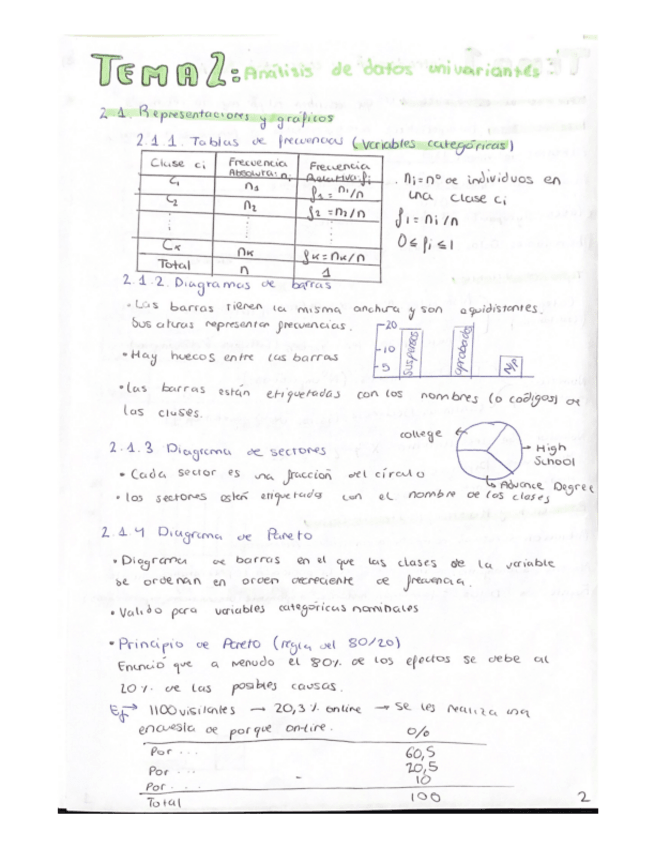 TEMA 2: Análisis de datos univariantes
2.1. Representaciones y gráficos
2.1.1. Tablas de frecuencias (variables categóricas)
Clase ci | Frecuencia Absoluta: ni | Frecuencia Relativa: fi
C1 | n1 | f1 = n1/n
C2 | n2 | f2 = n2/n
⋮ | ⋮ | ⋮
CK | nK | fK = nK/n
Total | n | 1
· ni = nº de individuos en
una clase ci
fi = ni/n
0 ≤ fi ≤ 1
2.1.2. Diagramas de barras
• Las barras tienen la misma anchura y son equidistantes.
Sus alturas representan frecuencias.
• Hay huecos entre las barras
20
10
5
suspensos
aprobado
N/P
• Las barras están etiquetadas con los nombres (o codigos) de
las clases.
2.1.3 Diagrama de sectores
• Cada sector es una fracción del círculo
• los sectores están etiquetada con el nombre de las clases
college
High
School
Advance Degree
2.1.4 Diagrama de Pareto
• Diagrama de barras en el que las clases de la variable
se ordenan en orden decreciente de frecuencia.
• Valido para variables categóricas nominales
• Principio de Pareto (regla del 80/20)
Enunció que a menudo el 80% de los efectos se debe al
20% de las posibles causas.
Ej → 1100 visitantes → 20,3% online → Se les realiza una
encuesta de porque on-line.
%
Por ... 60,5
Por ... 20,5
Por ... 10
Total 100
2